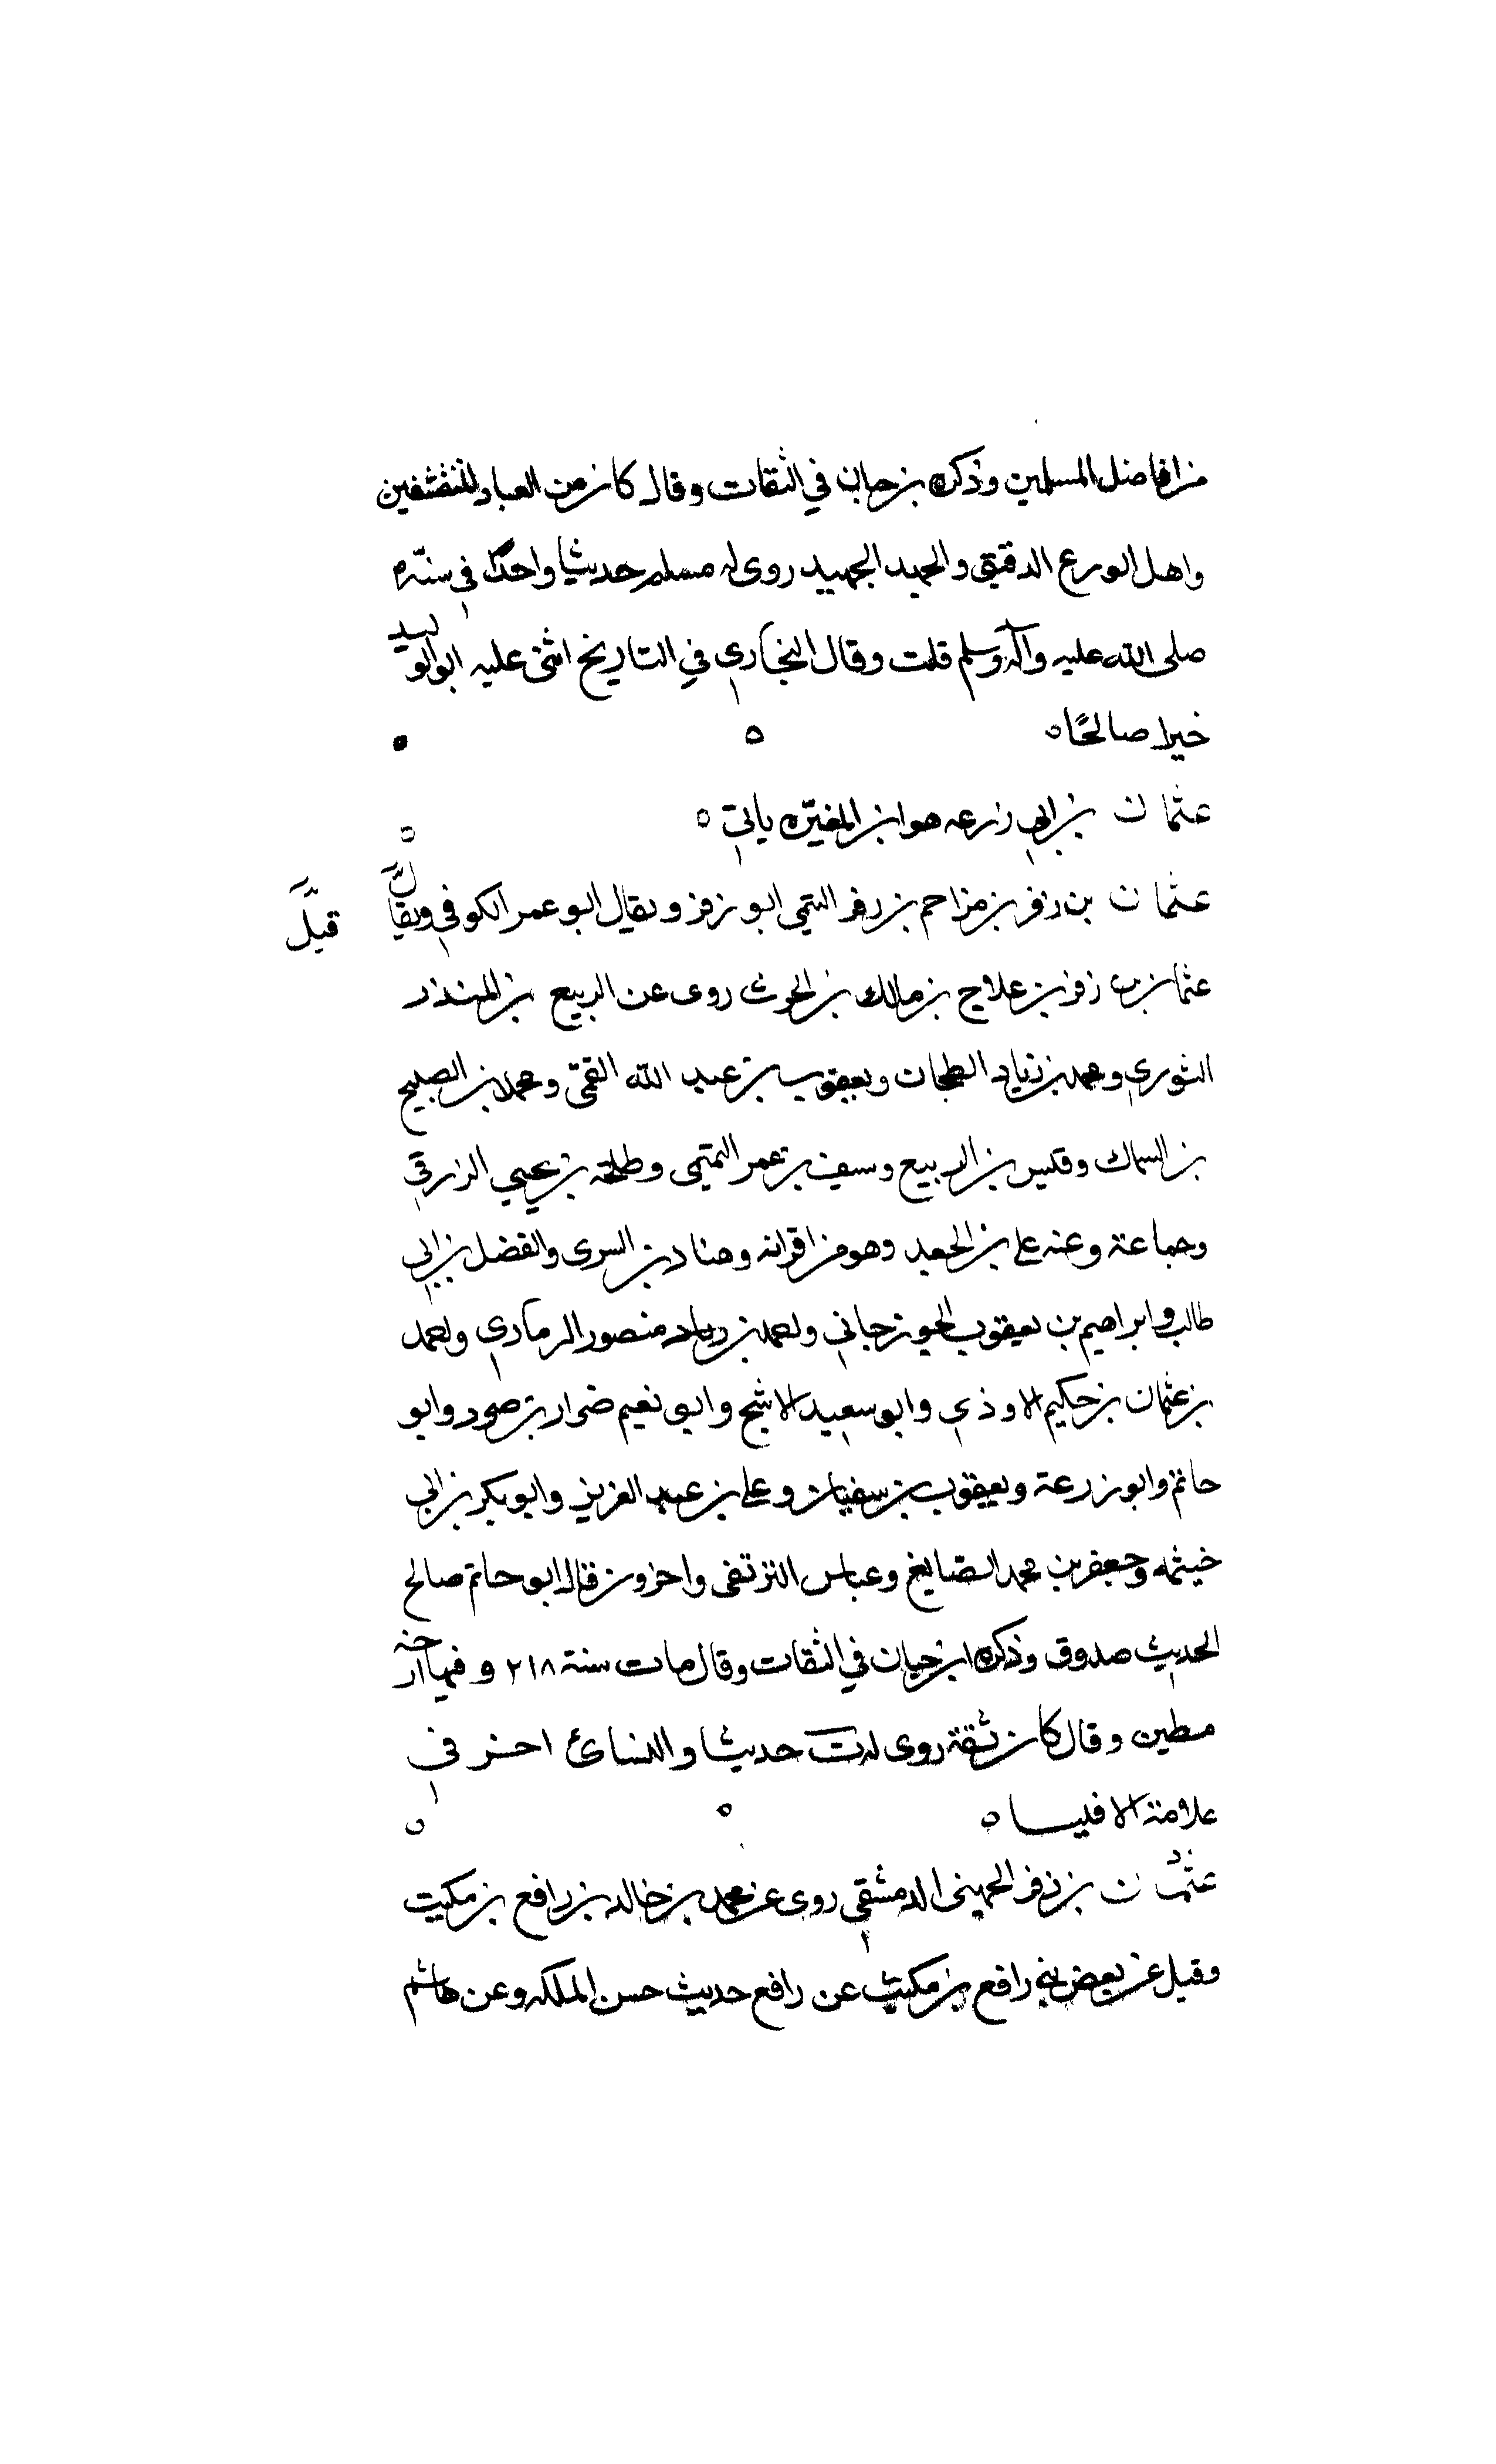 من افاضل المسلمين وذكره بن حبان في الثقات وقال كان من العباد المتقشفين
واهل الورع الدقيق والجهد الجهيد روى له مسلم حديثا واحدا في سنه
صلى الله عليه وآله وسلم قلت وقال البخاري في التاريخ اثنى عليه ابو الوليد
خيرا صالحًا
عثمان بن ابي زرعه هو ابن المغيره ياتي
عثمان بن زفر بن مزاحم بن زفر التيمي ابو زفر ويقال ابو عمر الكوفي ويقال
قيل
عثمان بن زفر بن علاج بن مالك بن الحرث روى عن الربيع بن المنذر
الثوري ومحمد بن زياد الطحان ويعقوب بن عبد الله القمي ومحمد بن الصبيح
بن السماك وقيس بن الربيع وسيف بن عمر التميمي وطلحة بن يحيى الزرقي
وجماعة وعنه علي بن الجعد وهو من اقرانه وهناد بن السري والفضل بن ابي
طالب وابراهيم بن يعقوب الجوزجاني واحمد بن منصور الرمادي واحمد
بن عثمان بن حكيم الاوذي وابو سعيد الاشج وابو نعيم ضرار بن صرد وابو
حاتم وابو زرعة ويعقوب بن سفيان وعلي بن عبد العزيز وابو بكر بن ابي
خيثمه وجعفر بن محمد الصايغ وعباس الترتفي واخرون قال ابو حاتم صالح
الحديث صدوق وذكره ابن حبان في الثقات وقال مات سنة ٢١٨ وفيها ارخه
مطين وقال كان ثقة روى له ت حديثا والنسائ اخر في
علامة الا
عثمان بن زفر الجهني الدمشقي روى عن محمد بن خالد بن رافع بن مكيث
وقيل عن بعض بني رافع بن مكيث عن رافع حديث حسن الملكه وعن هاشم